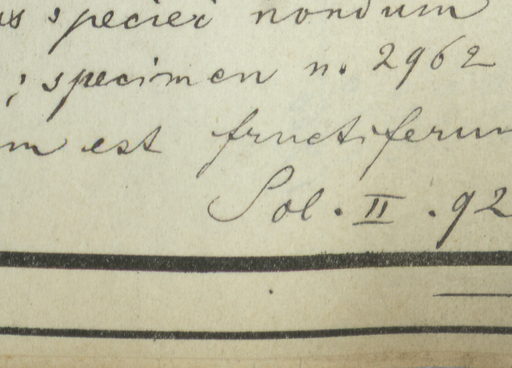 us speciei nondum
; specimen n. 2962
m est fructiferum
Sol. II. 92